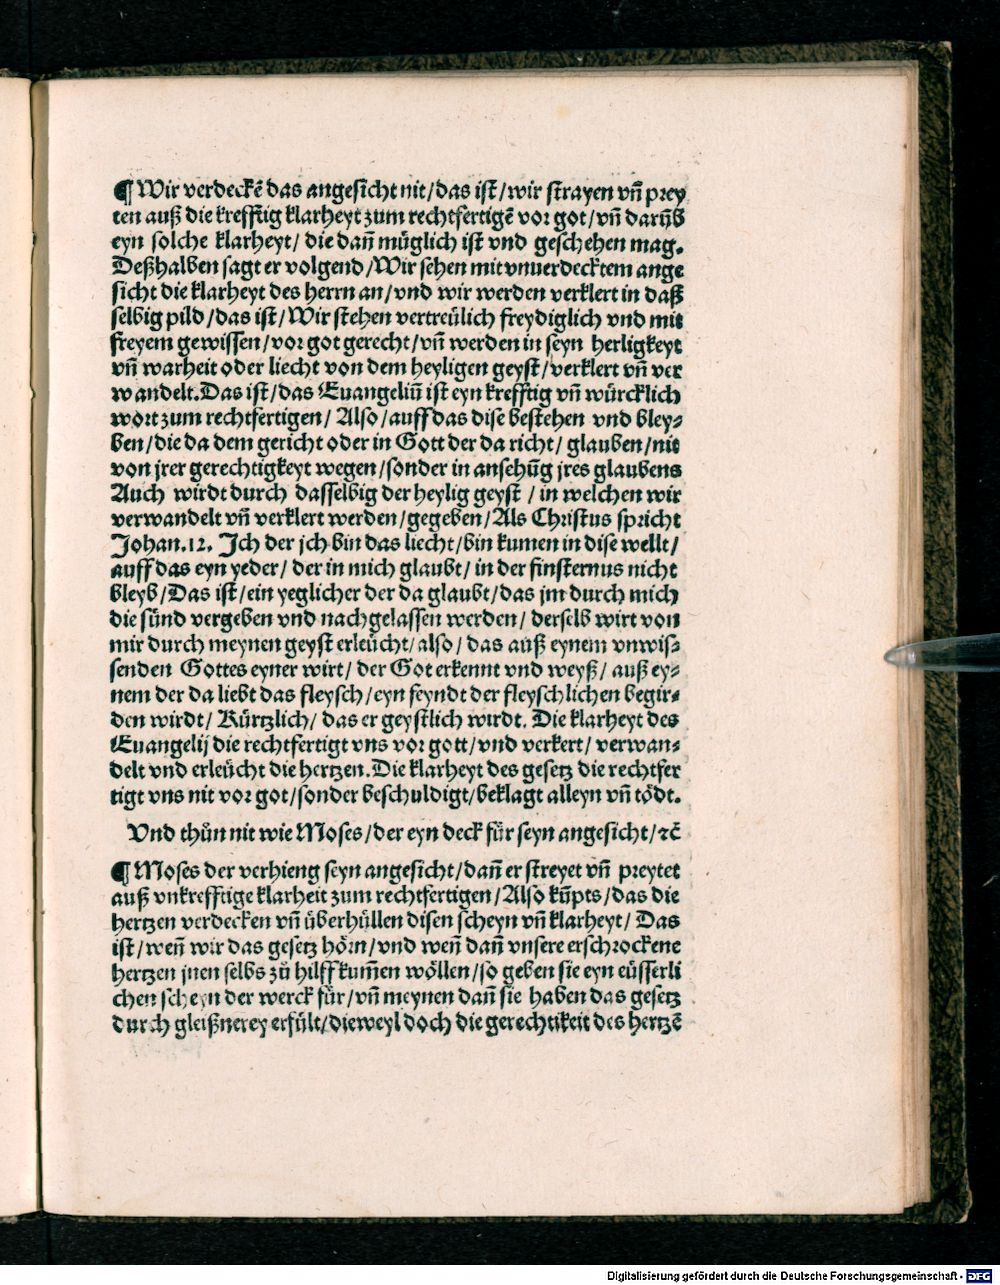 ¶ Wir verdeckē das angesicht nit/das ist/wir strayen vñ prey
ten auß die krefftig klarheyt zum rechtfertigē vor got/vñ darūb
eyn solche klarheyt/ die dañ müglich ist vnd geschehen mag.
Deßhalben sagt er volgend/Wir sehen mit vnuerdecktem ange
sicht die klarheyt des herrn an/vnd wir werden verklert in daß
selbig pild/das ist/Wir stehen vertreülich freydiglich vnd mit
freyem gewissen/vor got gerecht/vñ werden in seyn herligkeyt
vñ warheit oder liecht von dem heyligen geyst/verklert vñ ver
wandelt.Das ist/das Euangeliū ist eyn krefftig vñ würcklich
wort zum rechtfertigen/ Also/auff das dise bestehen vnd bley⸗
ben/die da dem gericht oder in Gott der da richt/ glauben/nit
von jrer gerechtigkeyt wegen/sonder in ansehūg jres glaubens
Auch wirdt durch dasselbig der heylig geyst / in welchen wir
verwandelt vñ verklert werden/gegeben/Als Christus spricht
Johan.12. Ich der jch bin das liecht/bin kumen in dise wellt/
auff das eyn yeder/ der in mich glaubt/ in der finsternus nicht
bleyb/Das ist/ein yeglicher der da glaubt/das jm durch mich
die sünd vergeben vnd nachgelassen werden/ derselb wirt von
mir durch meynen geyst erleücht/also/ das auß eynem vnwis⸗
senden Gottes eyner wirt/ der Got erkennt vnd weyß/ auß ey⸗
nem der da liebt das fleysch/eyn feyndt der fleyschlichen begir⸗
den wirdt/ Kürtzlich/ das er geystlich wirdt. Die klarheyt des
Euangelij die rechtfertigt vns vor gott/vnd verkert/ verwan⸗
delt vnd erleücht die hertzen.Die klarheyt des gesetz die rechtfer
tigt vns nit vor got/sonder beschuldigt/beklagt alleyn vñ tödt.
Vnd thůn nit wie Moses/der eyn deck für seyn angesicht/ꝛc̄
¶ Moses der verhieng seyn angesicht/dañ er streyet vñ preytet
auß vnkrefftige klarheit zum rechtfertigen/Also kūpts/das die
hertzen verdecken vñ überhüllen disen scheyn vñ klarheyt/ Das
ist/weñ wir das gesetz hörn/vnd weñ dañ vnsere erschrockene
hertzen jnen selbs zů hilff kum̄en wöllen/so geben sie eyn eüsserli
chen scheyn der werck für/vñ meynen dañ sie haben das gesetz
durch gleißnerey erfült/dieweyl doch die gerechtikeit des hertzē
Digitalisierung gefördert durch die Deutsche Forschungsgemeinschaft - DFG